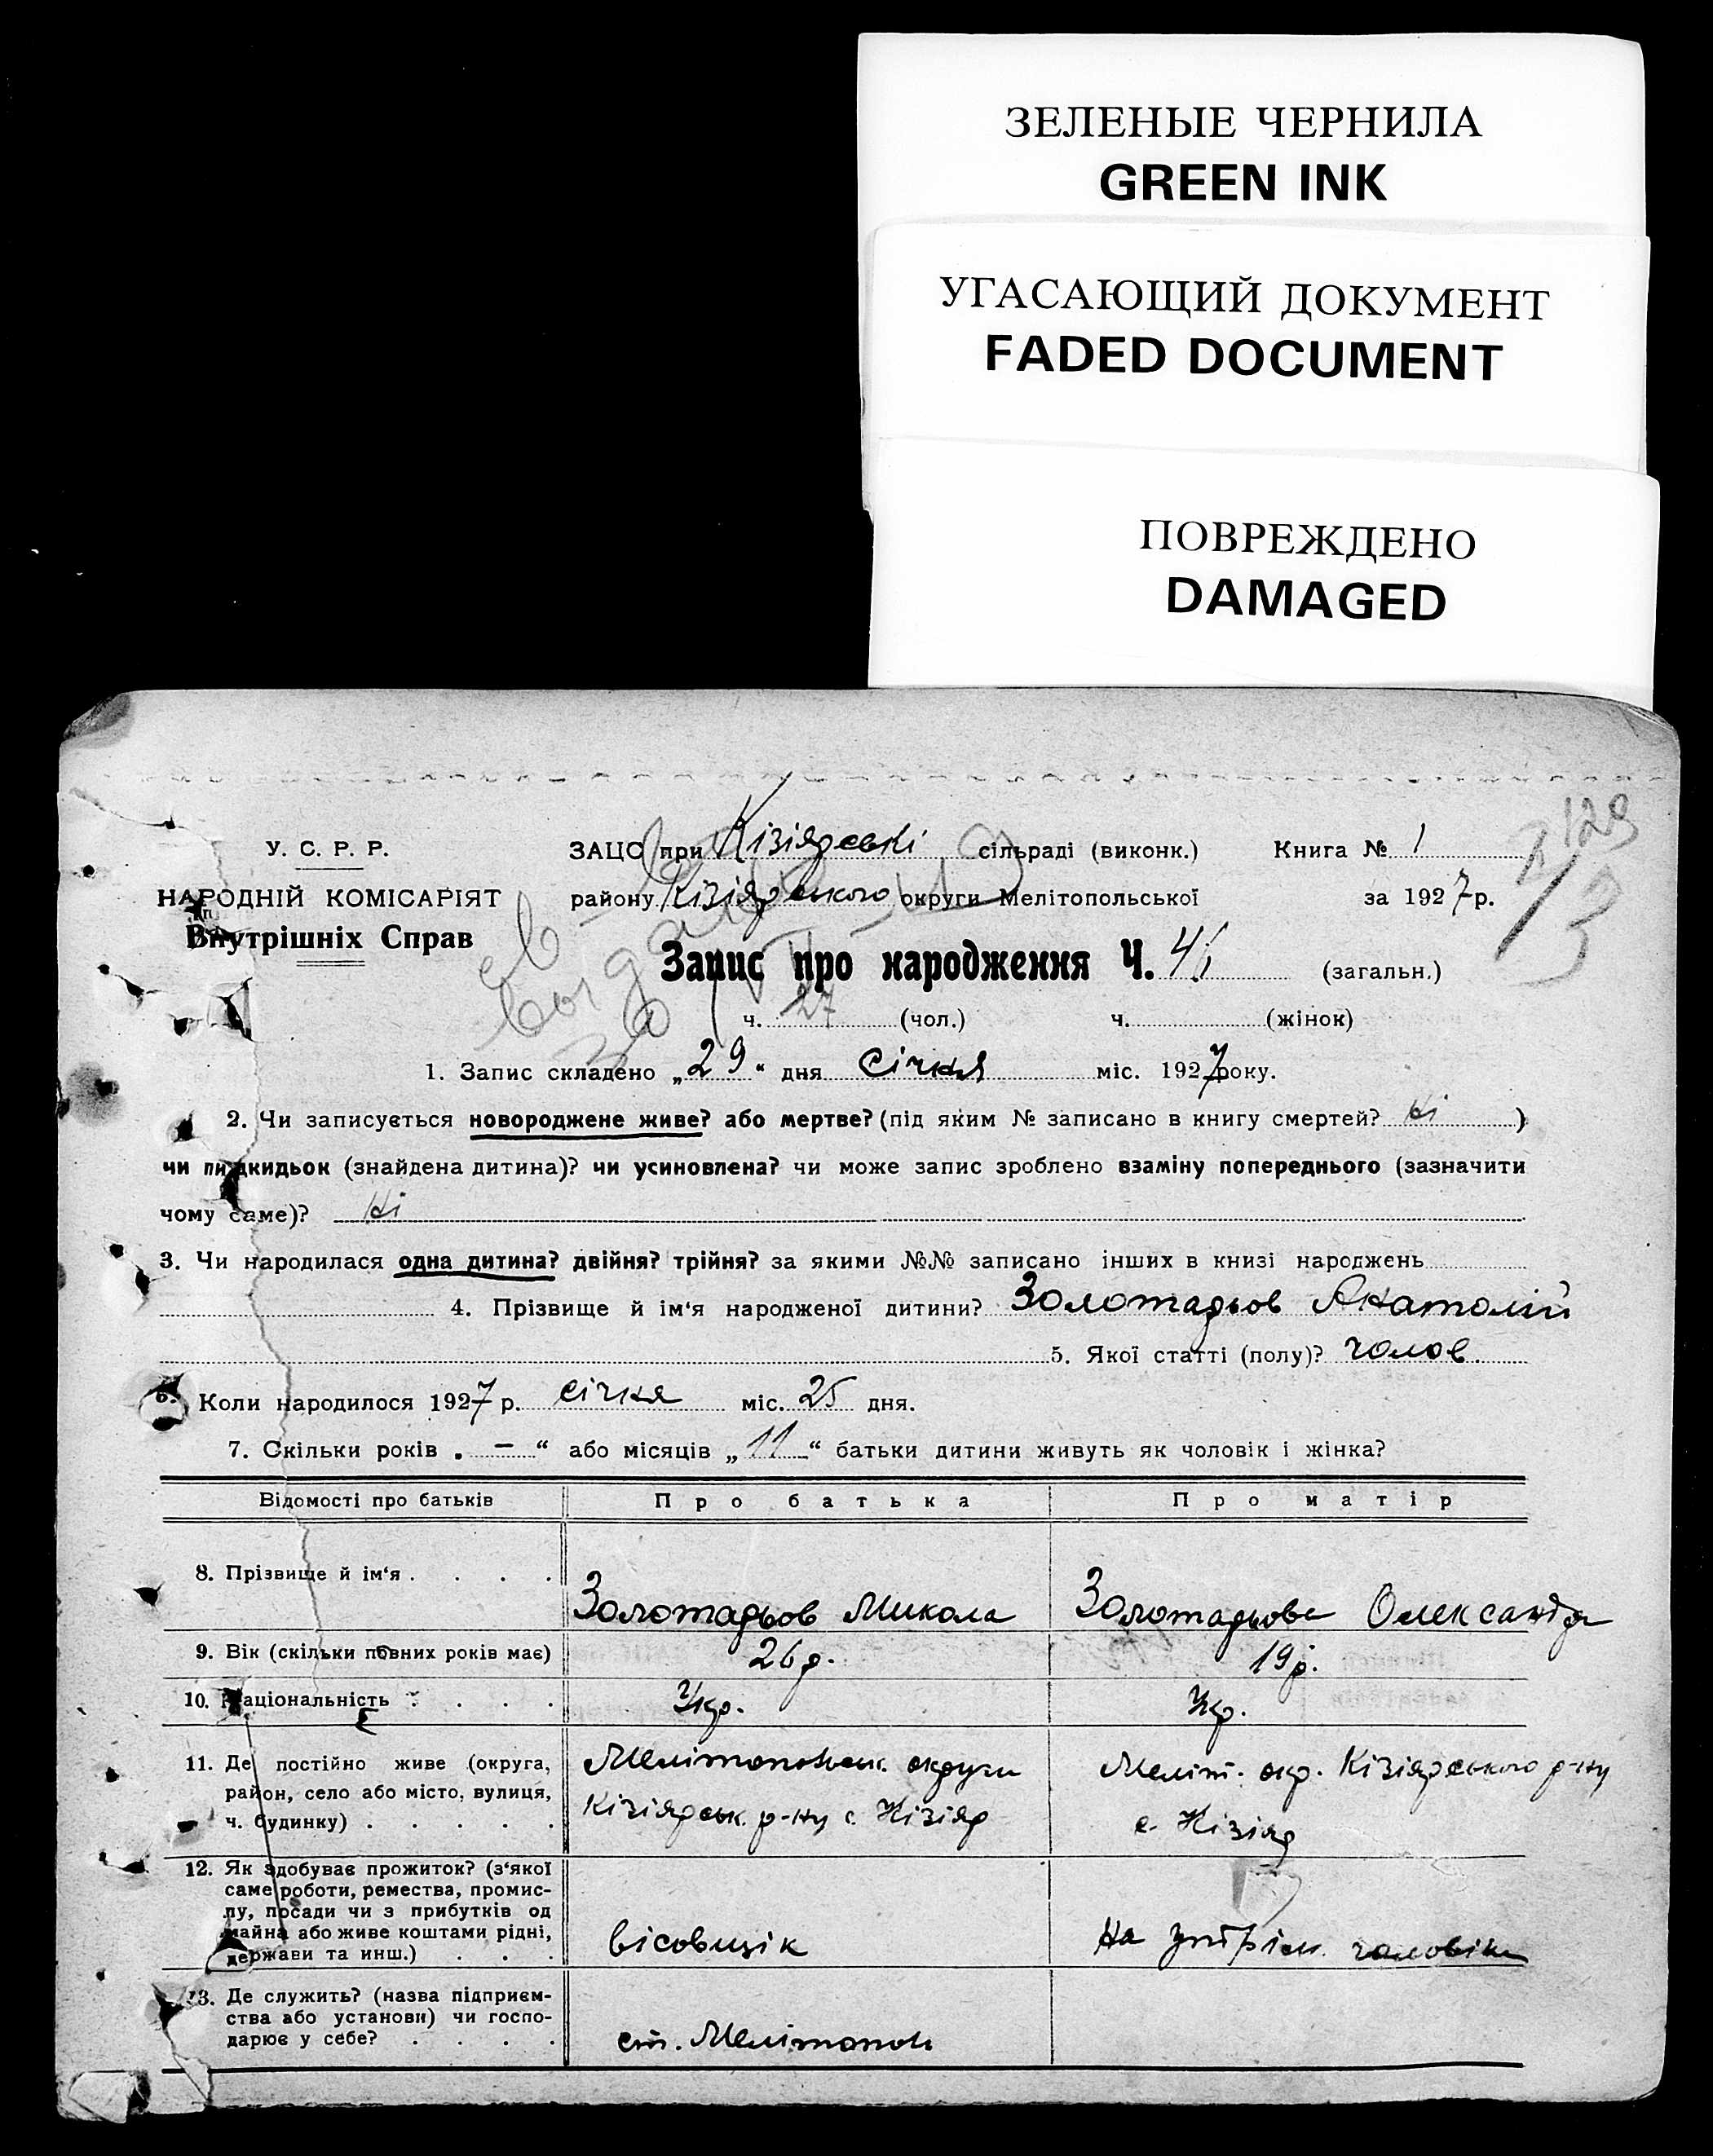 ЗЕЛЕНЫЕ ЧЕРНИЛА
GREEN INK
УГАСАЮЩИЙ ДОКУМЕНТ
FADED DOCUMENT
ПОВРЕЖДЕНО
DAMAGED
129
У. С. Р. Р.
НАРОДНІЙ КОМІСАРІЯТ
Внутрішніх Справ
ЗАЦС при Кізіярські сільраді (виконк.) Книга № 1
району Кізіярського округи Мелітопольської за 1927 р.
Запис про народження Ч. 46 (загальн.)
ч. 27 (чол.) ч. (жінок)
1. Запис складено „29“ дня Січня міс. 1927 року.
2. Чи записується новороджене живе? або мертве? (під яким № записано в книгу смертей? Ні )
чи підкидьок (знайдена дитина)? чи усиновлена? чи може запис зроблено взаміну попереднього (зазначити
чому саме)? Ні
3. Чи народилася одна дитина? двійня? трійня? за якими №№ записано інших в книзі народжень
4. Прізвище й ім‘я народженої дитини? Золотарьов Анатолій
5. Якої статті (полу)? чолов.
6. Коли народилося 1927 р. січня міс. 25 дня.
7. Скільки років „ — “ або місяців „ 11 “ батьки дитини живуть як чоловік і жінка?
Відомості про батьків Про батька Про матір
8. Прізвище й ім‘я . . . . Золотарьов Микола Золотарьова Олександра
9. Вік (скільки повних років має) 26 р. 19 р.
10. Національність . . . . Укр. Укр.
11. Де постійно живе (округа,
район, село або місто, вулиця,
ч. будинку) . . . . .
Мелітопольськ. округи
Кізіярськ. р-ну с. Кізіяр
Меліт. окр. Кізіярського р-ну
с. Кізіяр
12. Як здобуває прожиток? (з‘якої
саме роботи, ремества, промис-
лу, посади чи з прибутків од
майна або живе коштами рідні,
держави та инш.) . . .
вісовщік
На утрім. чоловіка
13. Де служить? (назва підприєм-
ства або установи) чи госпо-
дарює у себе? . . . .
ст. Мелітополь